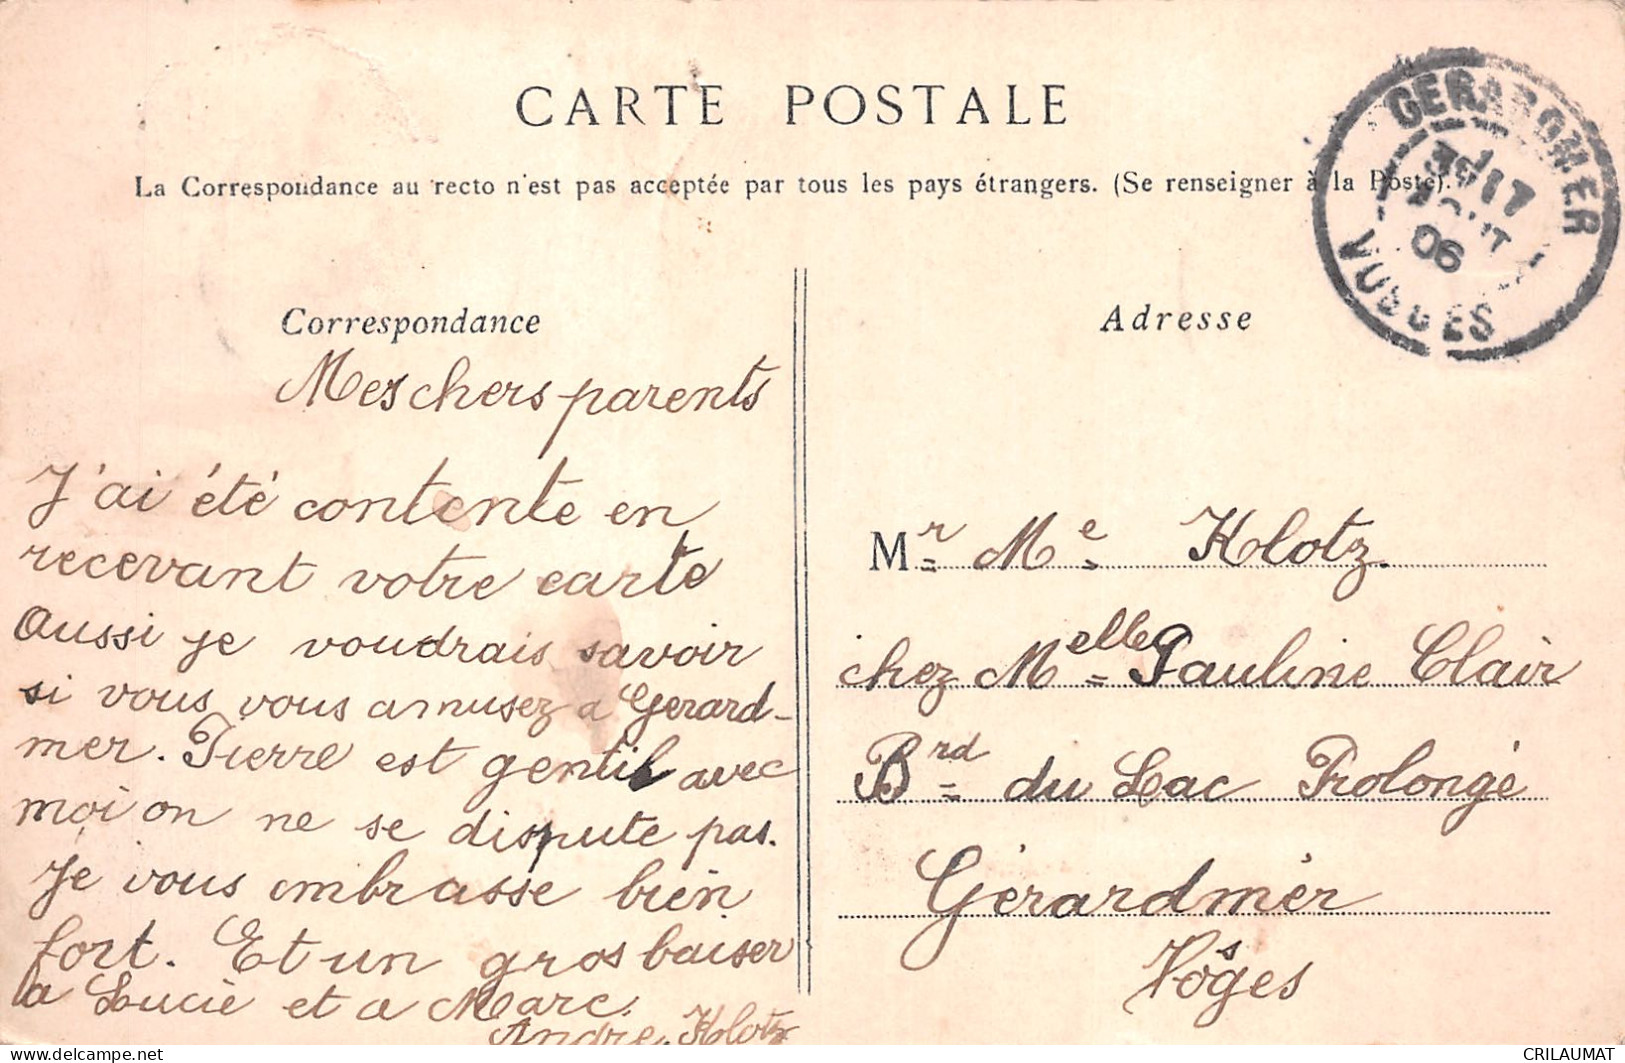 CARTE POSTALE
La Correspondance au recto n'est pas acceptée par tous les pays étrangers. (Se renseigner à la Poste).
GERARDMER
17
06
VOSGES
Correspondance
Mes chers parents
J'ai été contente en
recevant votre carte
Aussi je voudrais savoir
si vous vous amusez a Gerard-
mer. Pierre est gentil avec
moi on ne se dispute pas.
Je vous embrasse bien
fort. Et un gros baiser
a Lucie et a Marc.
Andre Klotz
Adresse
Mr Me Klotz.
chez Melle Pauline Clair
Brd du Lac Prolongé
Gérardmér
Vôsges
CRILAUMAT
delcampe.net